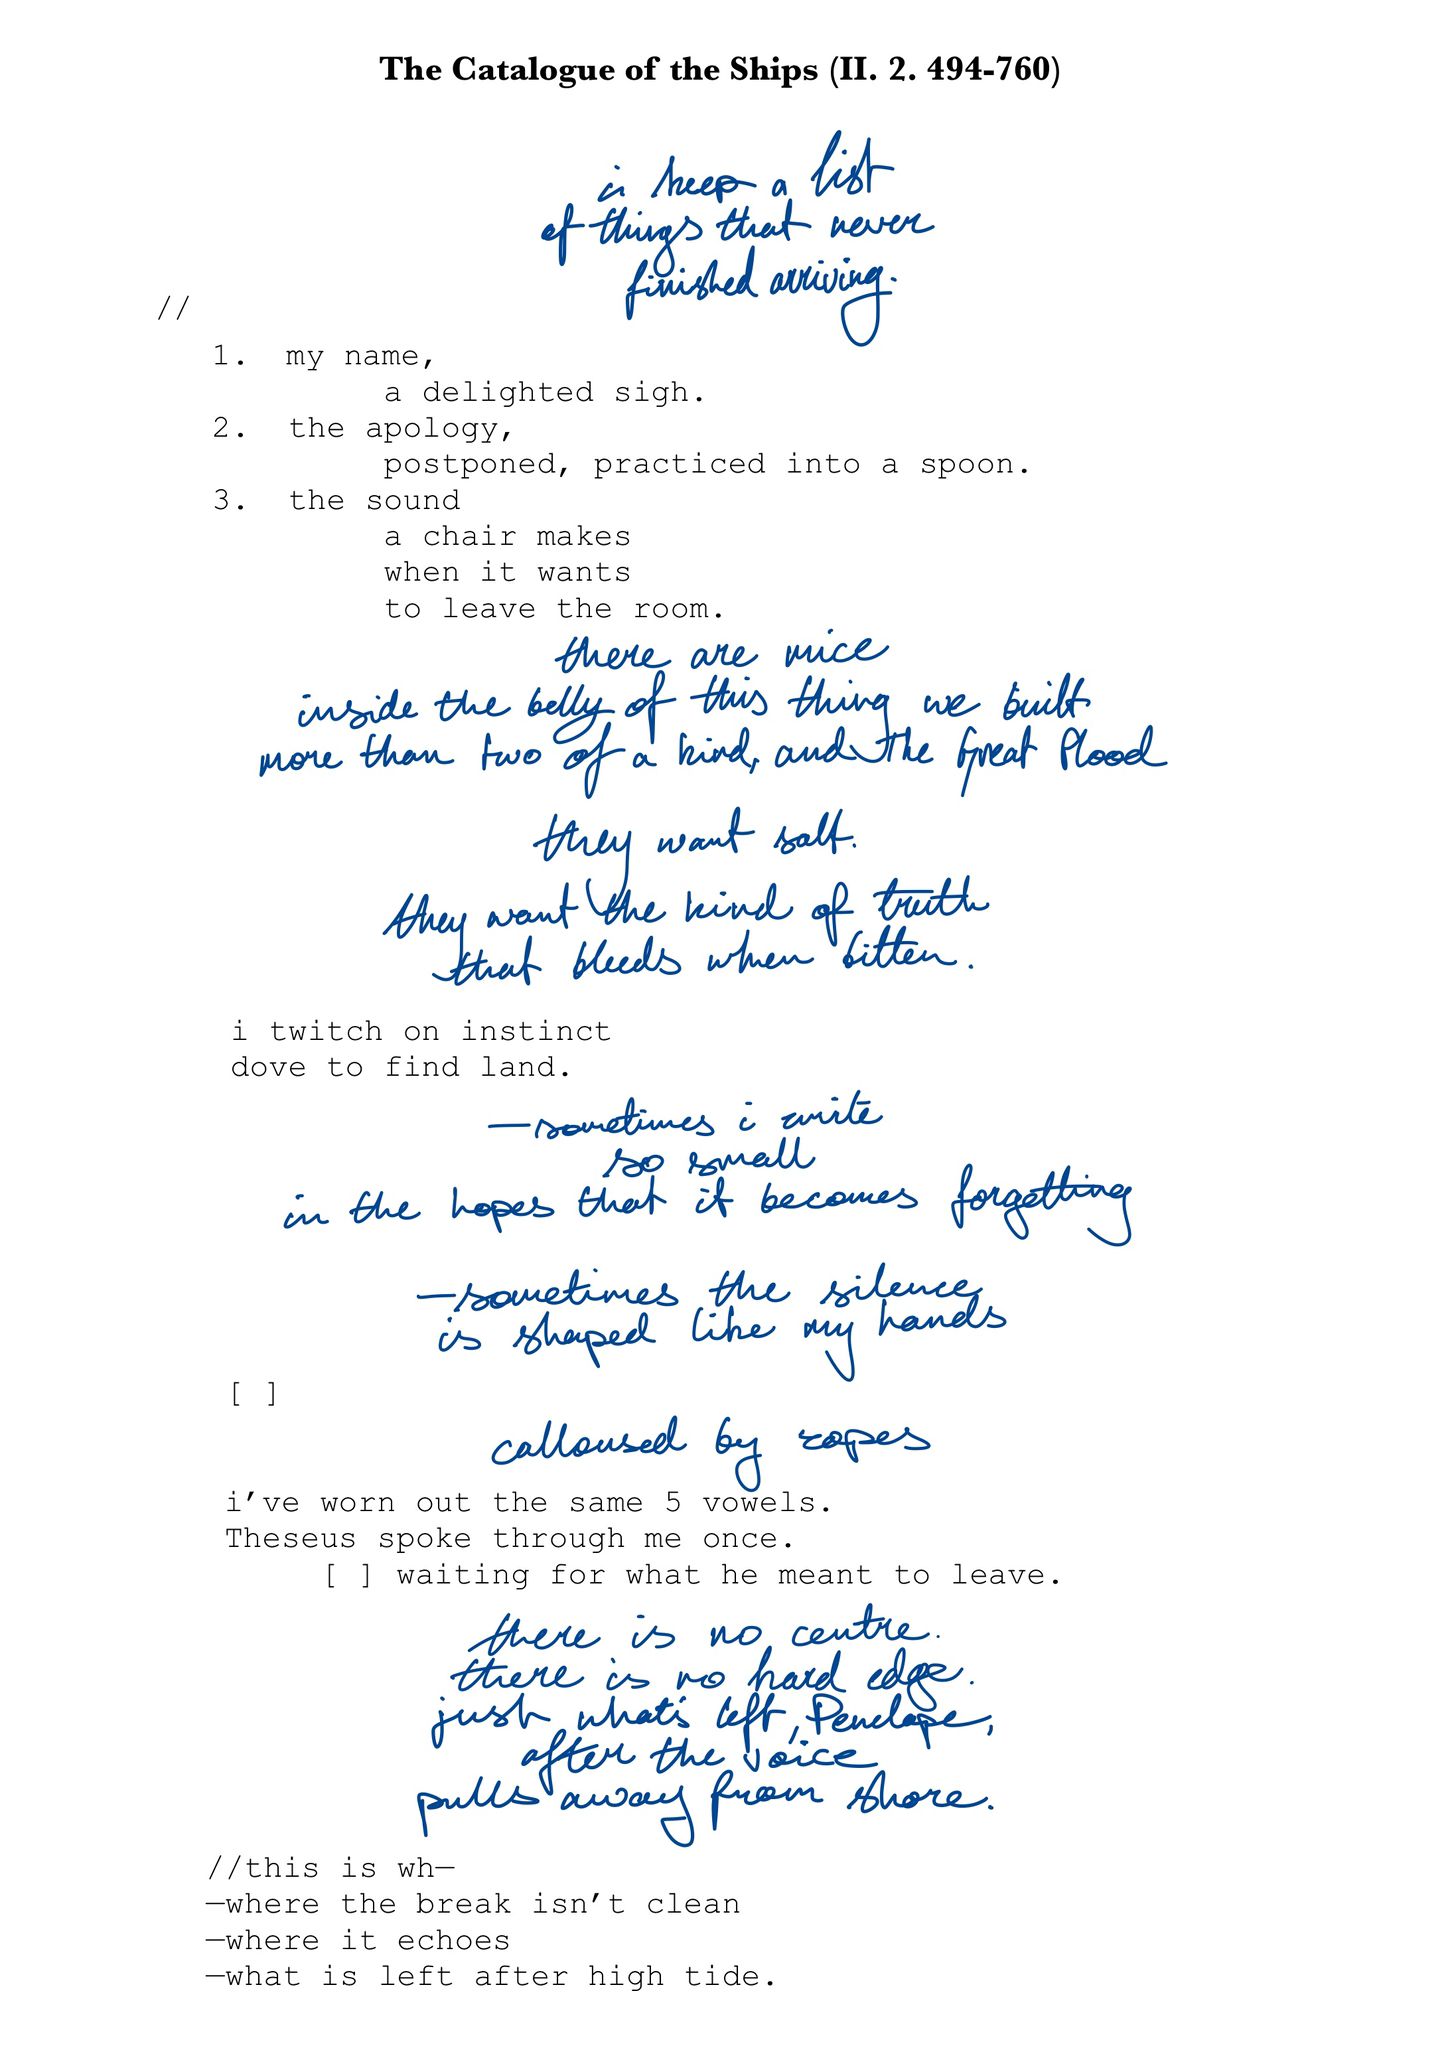 The Catalogue of the Ships (II. 2. 494-760)
i keep a list
of things that never
finished arriving.
//
1. my name,
a delighted sigh.
2. the apology,
postponed, practiced into a spoon.
3. the sound
a chair makes
when it wants
to leave the room.
there are mice
inside the belly of this thing we built
more than two of a kind, and the Great Flood
they want salt.
they want the kind of truth
that bleeds when bitten.
i twitch on instinct
dove to find land.
—sometimes i write
so small
in the hopes that it becomes forgetting
—sometimes the silence
is shaped like my hands
[ ]
calloused by ropes
i’ve worn out the same 5 vowels.
Theseus spoke through me once.
[ ] waiting for what he meant to leave.
there is no centre.
there is no hard edge.
just what's left, Penelope,
after the voice
pulls away from shore.
//this is wh—
—where the break isn’t clean
—where it echoes
—what is left after high tide.